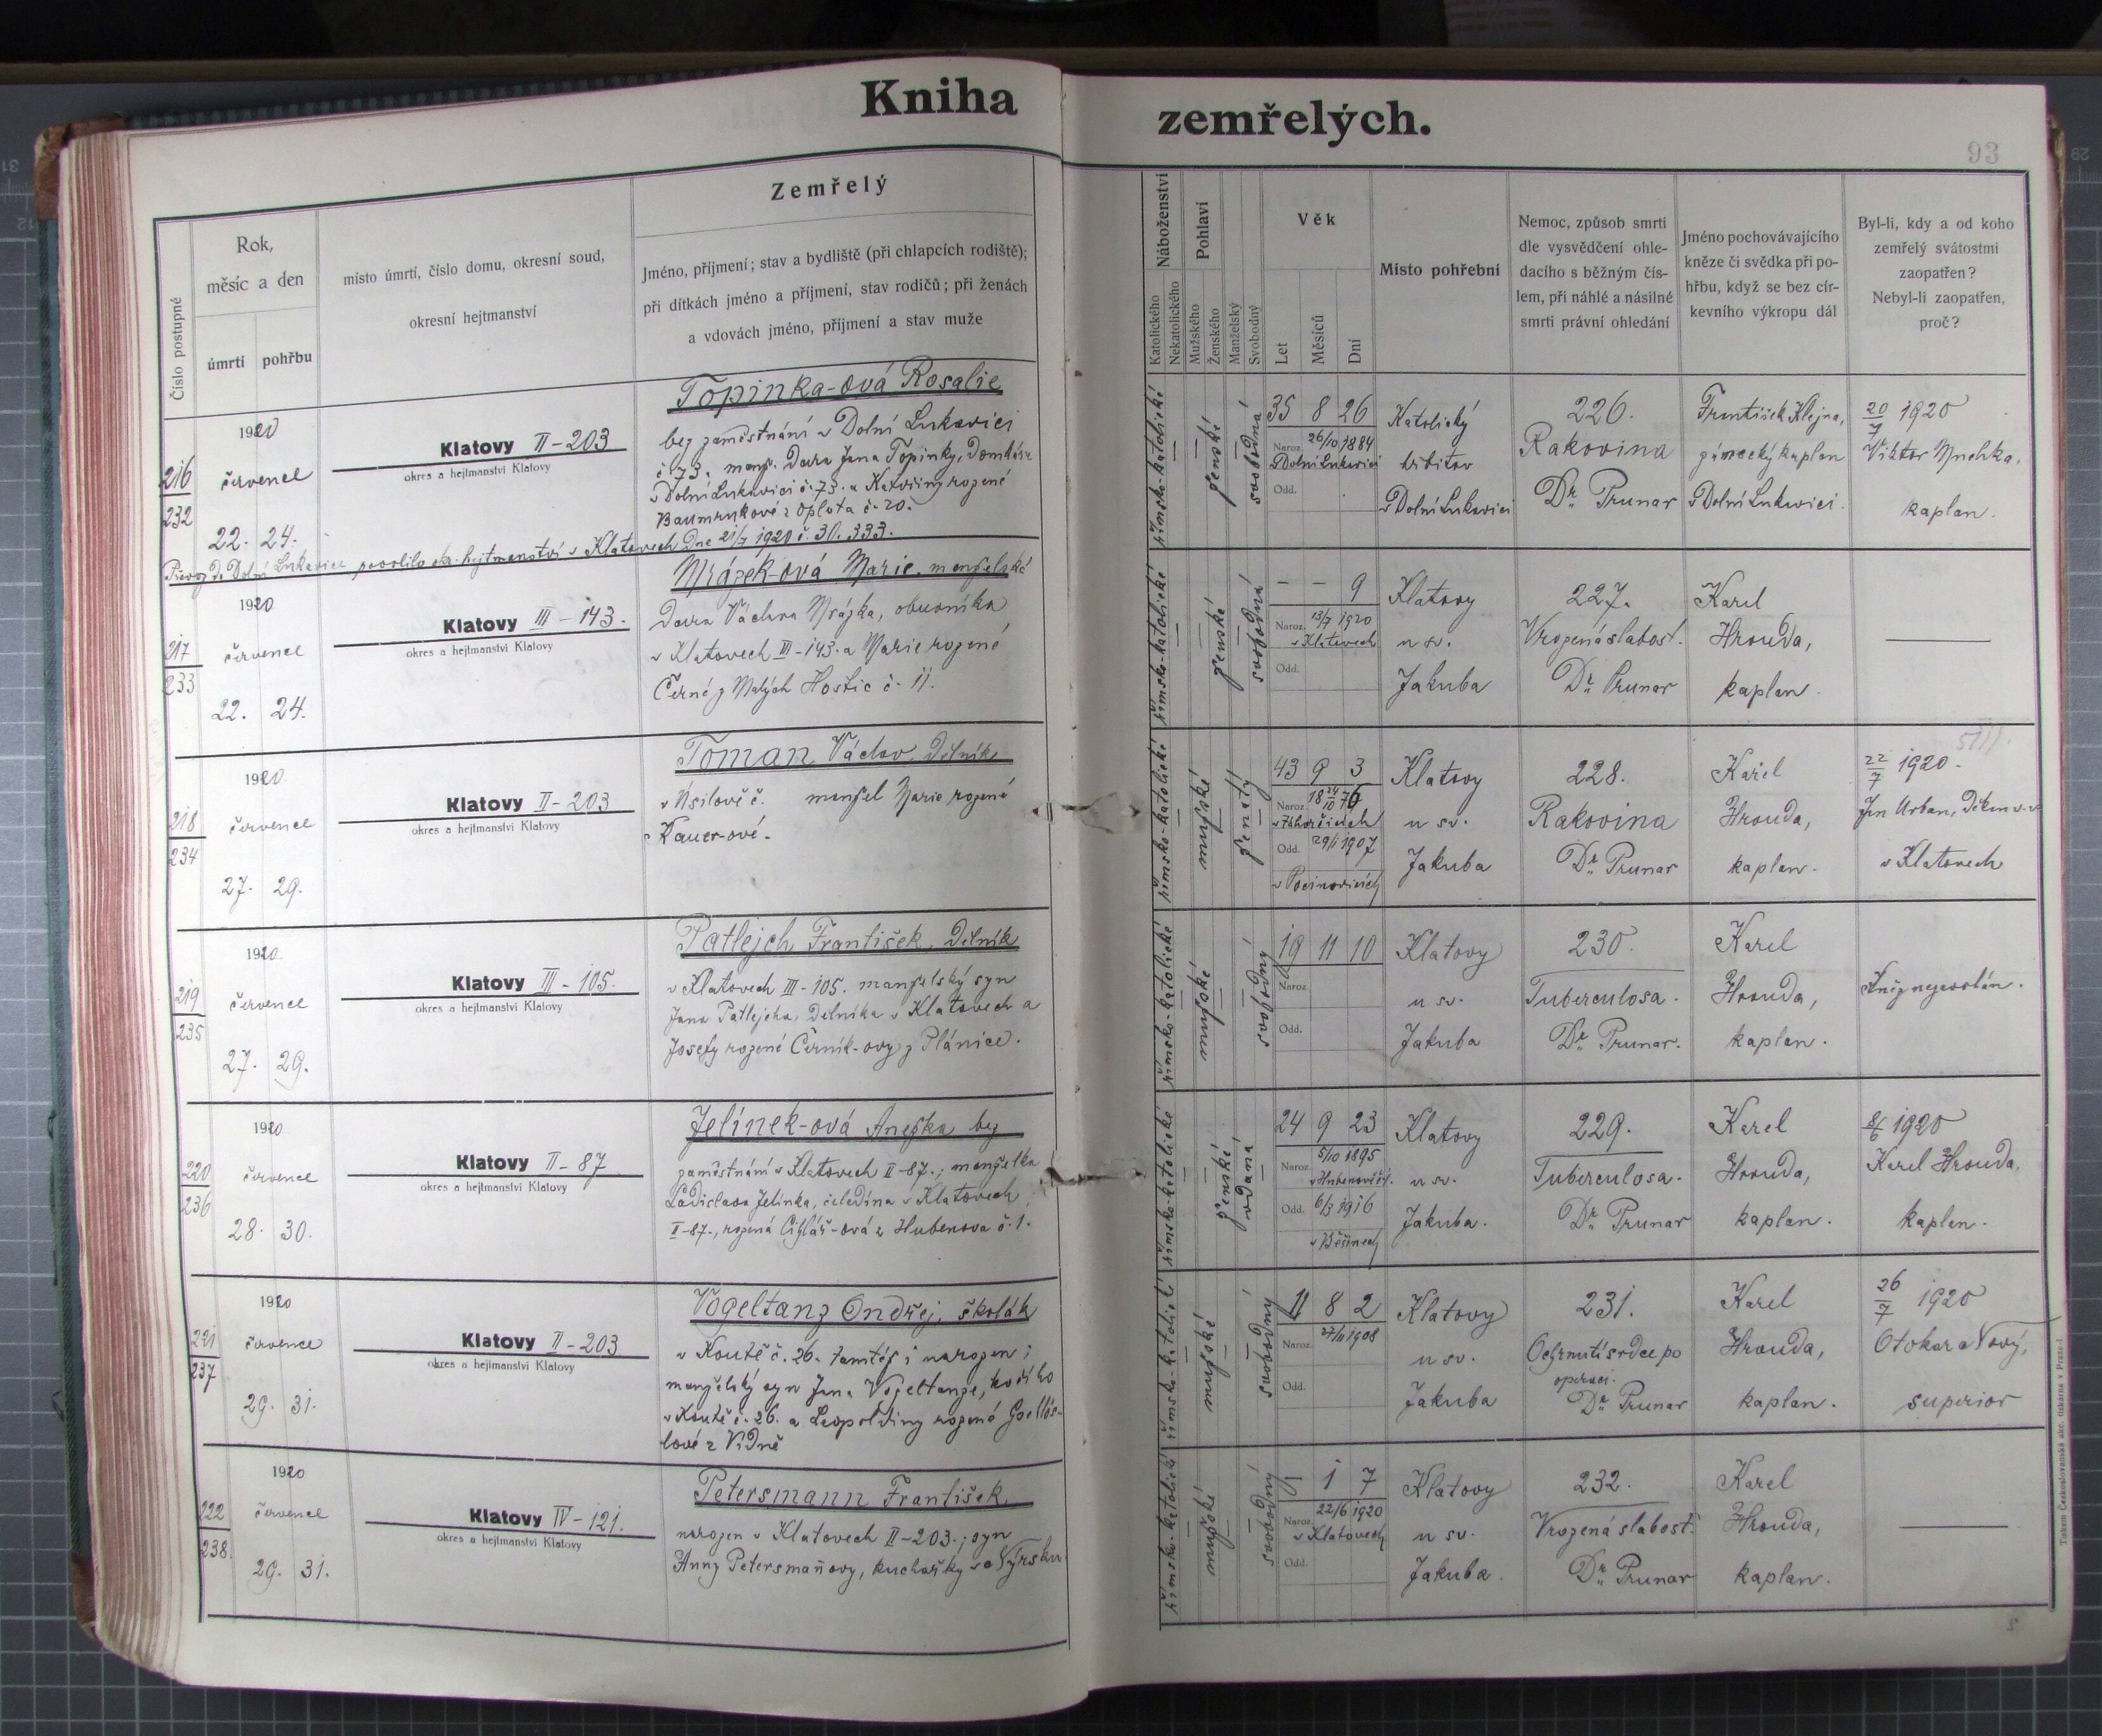 Kniha zemřelých.
93
Číslo postupné
Rok,
měsíc a den
úmrtí pohřbu
místo úmrtí, číslo domu, okresní soud,
okresní hejtmanství
Zemřelý
Jméno, příjmení; stav a bydliště (při chlapcích rodiště);
při dítkách jméno a příjmení, stav rodičů; při ženách
a vdovách jméno, příjmení a stav muže
Náboženství
Katolického
Nekatolického
Pohlaví
Mužského
Ženského
Manželský
Svobodný
Věk
Let
Měsíců
Dní
Místo pohřební
Nemoc, způsob smrti
dle vysvědčení ohle-
dacího s běžným čís-
lem, při náhlé a násilné
smrti právní ohledání
Jméno pochovávajícího
kněze či svědka při po-
hřbu, když se bez cír-
kevního výkropu dál
Byl-li, kdy a od koho
zemřelý svátostmi
zaopatřen?
Nebyl-li zaopatřen,
proč?
216
232
1920
červenec
22. 24.
Klatovy II-203
okres a hejtmanství Klatovy
Topinka-ová Rosalie
bez zaměstnání v Dolní Lukavici
č. 73. manž. dcera Jana Topinky, domkáře
v Dolní Lukavici č. 73. a Kateřiny rozené
Baumrukové z Oplota č. 20.
Převoz do Dolní Lukavice povolilo okr. hejtmanství v Klatovech dne 21/7 1920 č. 30.333.
římsko-katolické
ženské
svobodná
35 8 26
Naroz. 26/10 1884
v Dolní Lukavici
Odd.
Katolický
hřbitov
v Dolní Lukavici
226.
Rakovina
Dr. Prunar
František Klejna,
zámecký kaplan
v Dolní Lukavici.
20/7 1920
Viktor
kaplan.
217
233
1920
července
22. 24.
Klatovy III-143.
okres a hejtmanství Klatovy
Mrázek-ová Marie. manželská
dcera Václava Mrázka, obuvníka
v Klatovech III-143. a Marie rozené
Černé z Malých Hoštic č. 11.
římsko-katolické
ženské
svobodná
- - 9
Naroz. 13/7 1920
v Klatovech
Odd.
Klatovy
u sv.
Jakuba
227.
Vrozená slabost.
Dr. Prunar
Karel
Hrouda,
kaplan.
218
234
1920
července
27. 29.
Klatovy II-203
okres a hejtmanství Klatovy
Toman Václav, dělník
v Úsilově č. manžel Marie rozené
Kauer-ové.
římsko-katolické
mužské
ženatý
43 9 3
Naroz. 18 24/10 76
v Zahorčicích
Odd. 29/1 1907
v Pocinovicích
Klatovy
u sv.
Jakuba
228.
Rakovina
Dr. Prunar
Karel
Hrouda,
kaplan.
22/7 1920.
Jan Urban, děkan v.v.
v Klatovech
219
235
1920
července
27. 29.
Klatovy III-105.
okres a hejtmanství Klatovy
Patlejch František, dělník
v Klatovech III-105. manželský syn
Jana Patlejcha, dělníka v Klatovech a
Josefy rozené Černík-ovy z Plánice.
římsko-katolické
mužské
svobodný
19 11 10
Naroz.
Odd.
Klatovy
u sv.
Jakuba
230.
Tuberculosa.
Dr. Prunar.
Karel
Hrouda,
kaplan.
Kněz nezavolán.
220
236
1920
července
28. 30.
Klatovy II-87
okres a hejtmanství Klatovy
Jelínek-ová Anežka bez
zaměstnání v Klatovech II-87.; manželka
Ladislava Jelínka, čeledína v Klatovech
II-87., rozená Cihlář-ová z Hubenova č. 1.
římsko-katolické
ženské
vdaná
24 9 23
Naroz. 5/10 1895
Odd. 6/3 1916
v Běšinech
Klatovy
u sv.
Jakuba.
229.
Tuberculosa.
Dr. Prunar
Karel
Hrouda,
kaplan.
8/6 1920
Karel Hrouda,
kaplan.
221
237
1920
července
29. 31.
Klatovy II-203
okres a hejtmanství Klatovy
Vogeltanz Ondřej, školák
v Koutě č. 26. tamtéž i narozen;
manželský syn Jana Vogeltanze,
v Koutě č. 26. a Leopoldiny rozené
lové z Vídně
římsko-katolické
mužské
svobodný
11 8 2
Naroz. 27/11 1908
Odd.
Klatovy
u sv.
Jakuba
231.
Ochrnutí srdce po
operaci.
Dr. Prunar
Karel
Hrouda,
kaplan.
26/7 1920
Otokar Nový,
superior
222
238.
1920
července
29. 31.
Klatovy IV-121.
okres a hejtmanství Klatovy
Petersmann František
narozen v Klatovech II-203.; syn
Anny Petersmaňovy, kuchařky v Nýrsku
římsko-katolické
mužské
svobodný
1 7
Naroz. 22/6 1920
v Klatovech
Odd.
Klatovy
u sv.
Jakuba.
232.
Vrozená slabost.
Dr. Prunar
Karel
Hrouda,
kaplan.
Tiskem Československé akc. tiskárna v Praze-I.